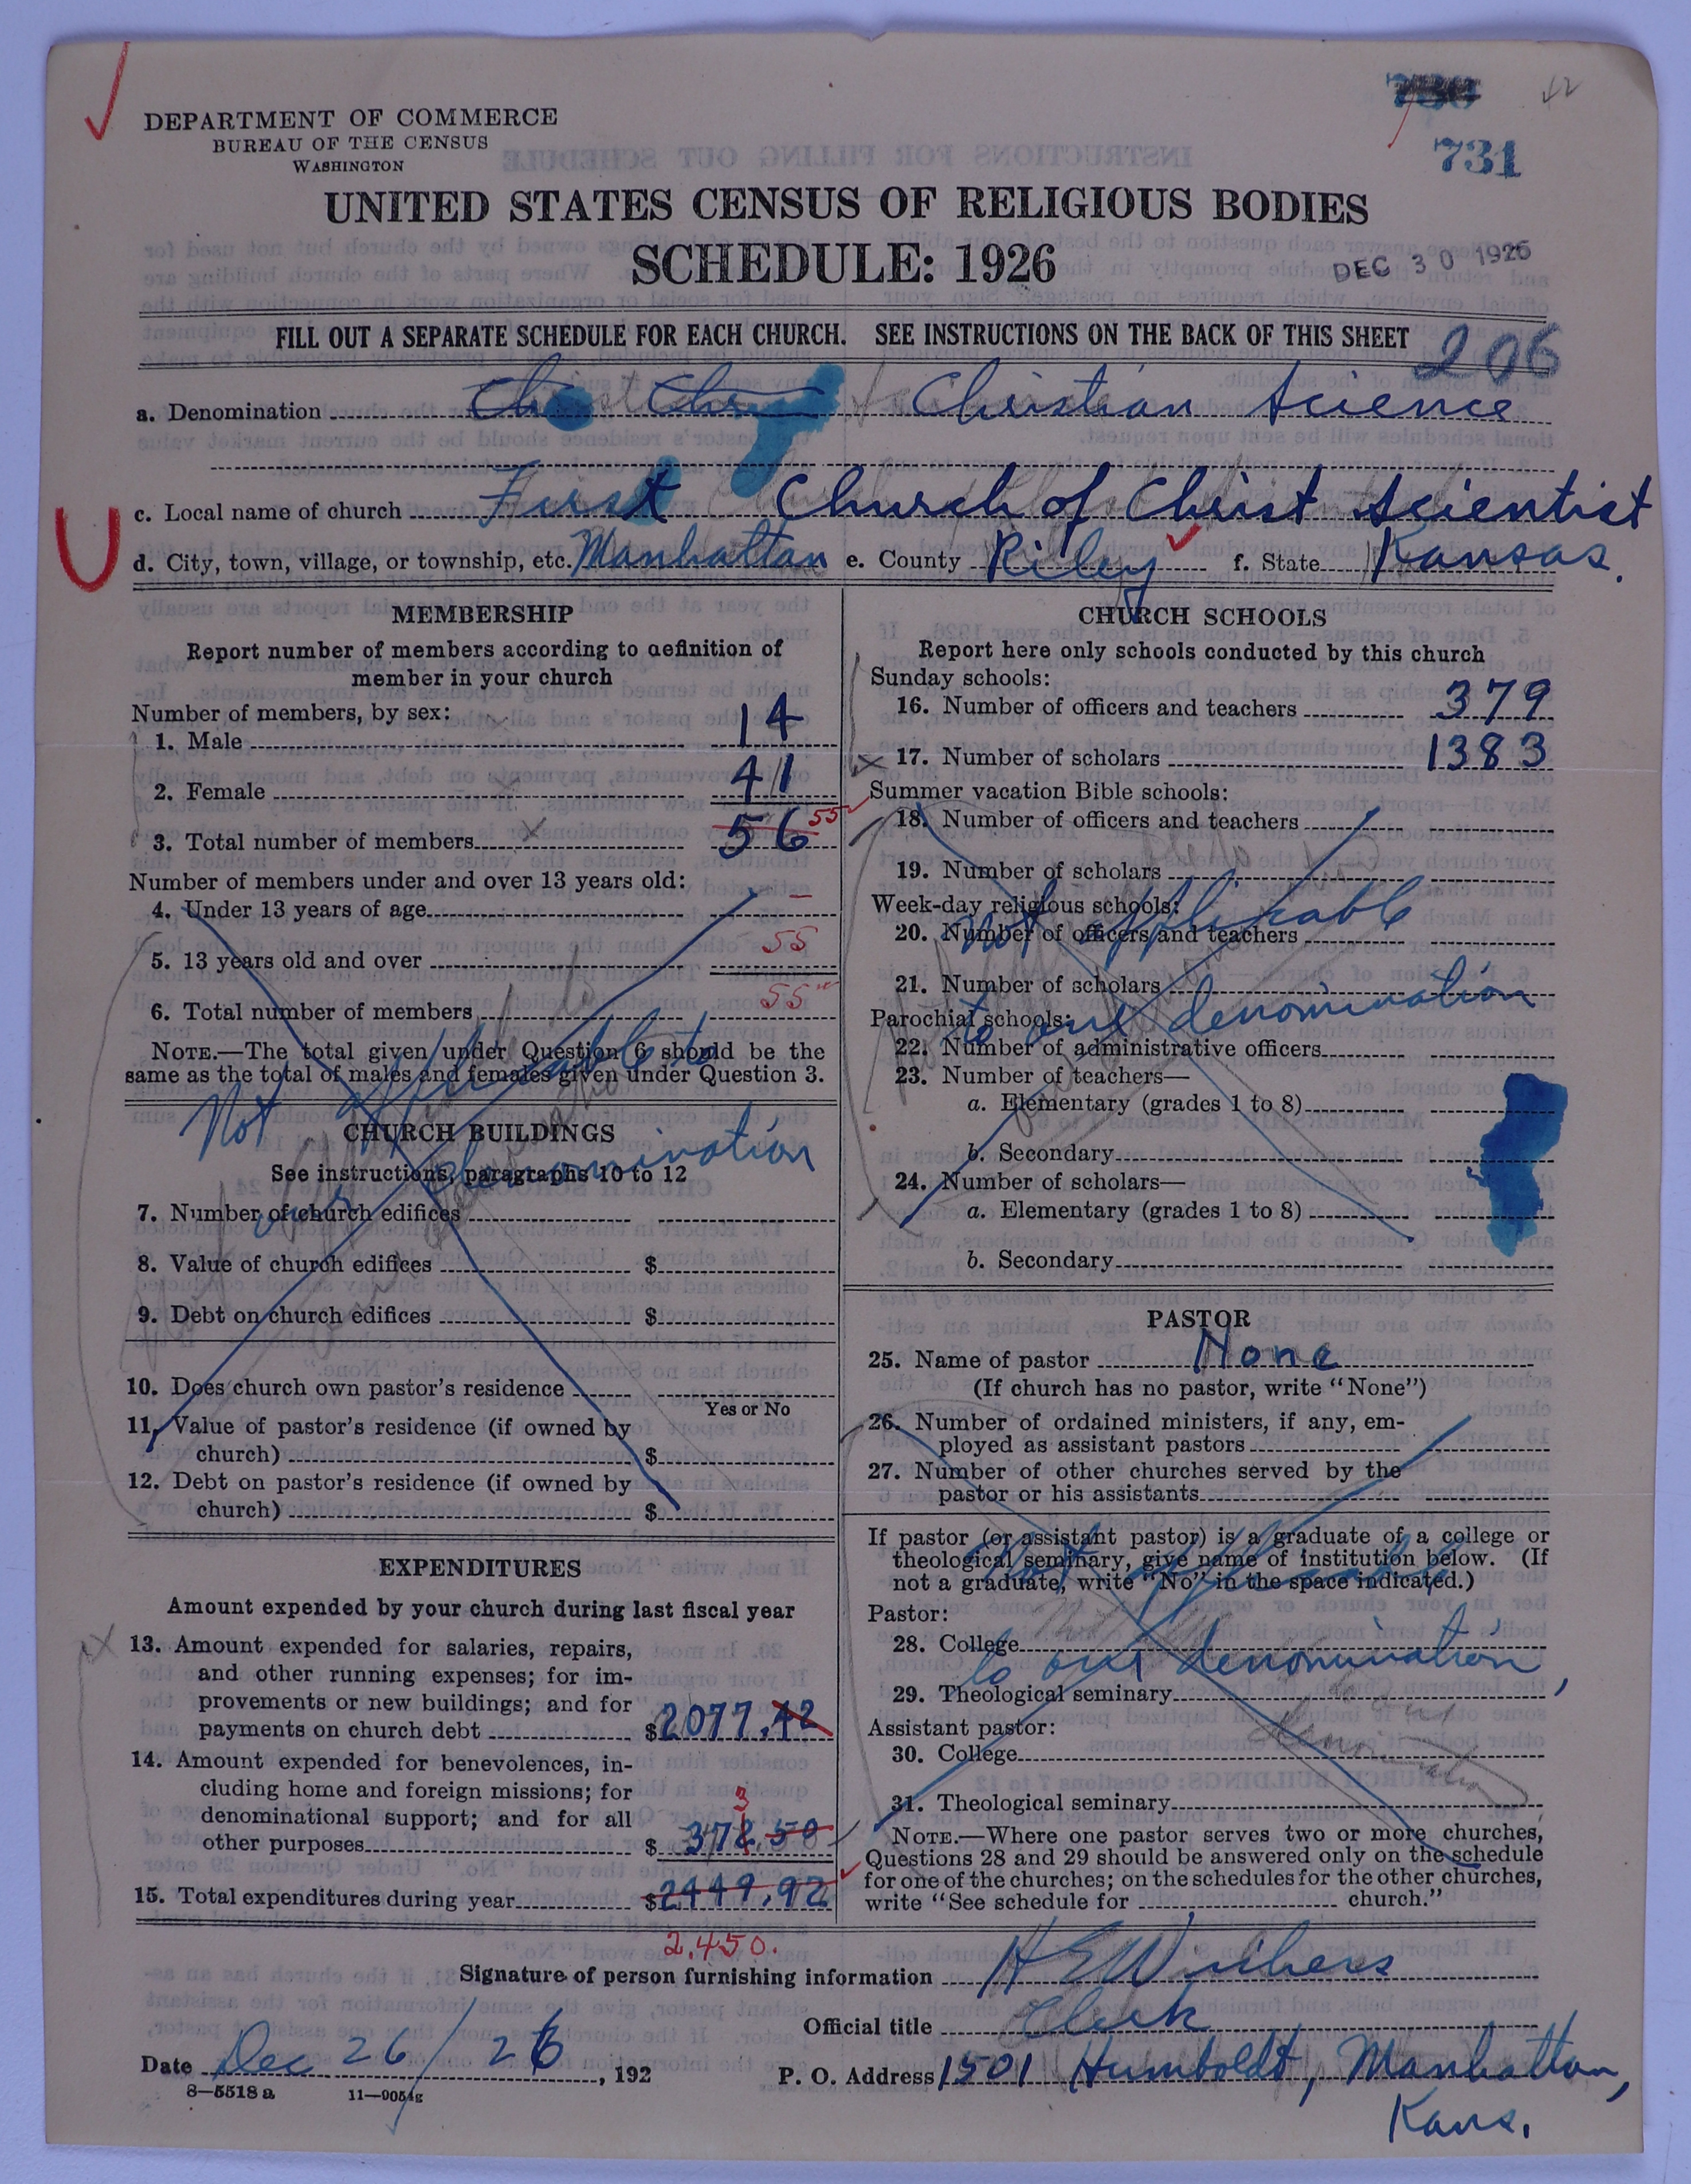 DEPARTMENT OF COMMERCE
BUREAU OF THE CENSUS
WASHINGTON
731
UNITED STATES CENSUS OF RELIGIOUS BODIES
SCHEDULE: 1926
DEC 30 1926
FILL OUT A SEPARATE SCHEDULE FOR EACH CHURCH. SEE INSTRUCTIONS ON THE BACK OF THIS SHEET
206
a. Denomination Christian Science
c. Local name of church First Church of Christ Scientist
d. City, town, village, or township, etc. Manhattan e. County Riley f. State Kansas.
MEMBERSHIP
Report number of members according to definition of
member in your church
Number of members, by sex:
1. Male 14
2. Female 41
3. Total number of members 56 55
Number of members under and over 13 years old:
4. Under 13 years of age –
5. 13 years old and over 55
6. Total number of members 55
NOTE.—The total given under Question 6 should be the
same as the total of males and females given under Question 3.
Not applicable to
our denomination
CHURCH BUILDINGS
See instructions, paragraphs 10 to 12
7. Number of church edifices
8. Value of church edifices $
9. Debt on church edifices $
10. Does church own pastor's residence
Yes or No
11. Value of pastor's residence (if owned by
church) $
12. Debt on pastor's residence (if owned by
church) $
EXPENDITURES
Amount expended by your church during last fiscal year
13. Amount expended for salaries, repairs,
and other running expenses; for im-
provements or new buildings; and for
payments on church debt $2077.42
14. Amount expended for benevolences, in-
cluding home and foreign missions; for
denominational support; and for all
other purposes $ 372.50
3
15. Total expenditures during year $2449.92
2,450.
CHURCH SCHOOLS
Report here only schools conducted by this church
Sunday schools:
16. Number of officers and teachers 379
17. Number of scholars 1383
Summer vacation Bible schools:
18. Number of officers and teachers
19. Number of scholars
Week-day religious schools:
20. Number of officers and teachers
21. Number of scholars
Not applicable
to our denomination
Parochial schools:
22. Number of administrative officers
23. Number of teachers—
a. Elementary (grades 1 to 8)
b. Secondary
24. Number of scholars—
a. Elementary (grades 1 to 8)
b. Secondary
PASTOR
25. Name of pastor None
(If church has no pastor, write "None")
26. Number of ordained ministers, if any, em-
ployed as assistant pastors
27. Number of other churches served by the
pastor or his assistants
If pastor (or assistant pastor) is a graduate of a college or
theological seminary, give name of institution below. (If
not a graduate, write "No" in the space indicated.)
Not applicable
to our denomination,
Pastor:
28. College
29. Theological seminary
Assistant pastor:
30. College
31. Theological seminary
NOTE.—Where one pastor serves two or more churches,
Questions 28 and 29 should be answered only on the schedule
for one of the churches; on the schedules for the other churches,
write "See schedule for church."
Signature of person furnishing information
Official title Clerk
Date Dec 26/26, 192
P. O. Address 1501 Humboldt, Manhattan,
Kans.
8—5518a 11—9054g